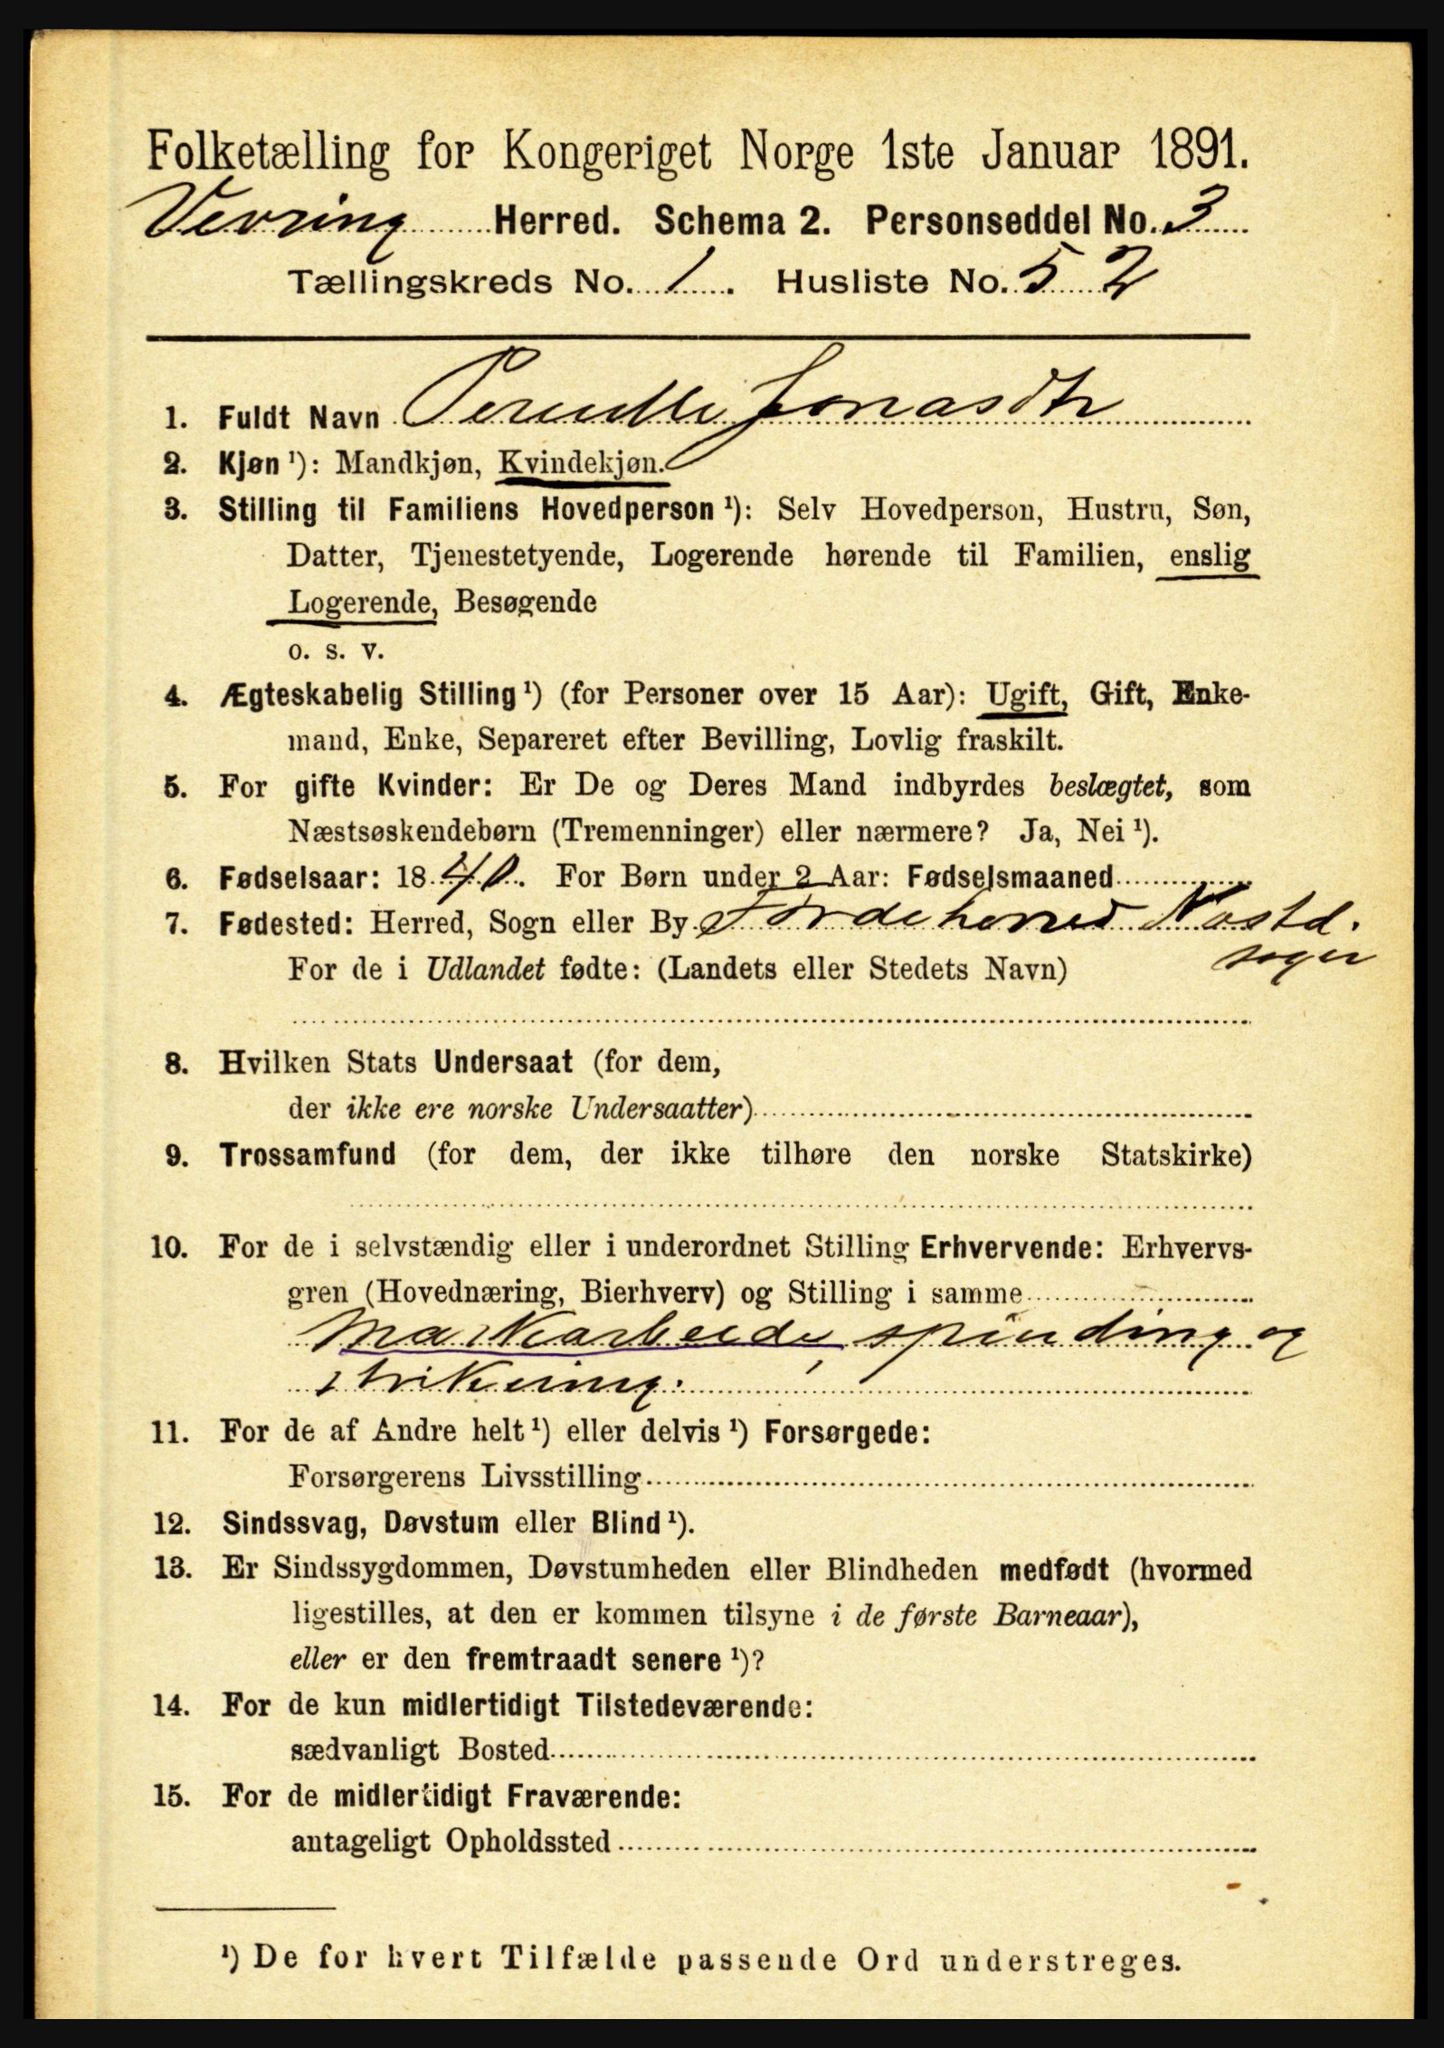 Folketælling for Kongeriget Norge 1ste Januar 1891.
Vevring Herred. Schema 2. Personseddel No. 3
Tællingskreds No. 1. Husliste No. 52
1. Fuldt Navn Pernille Jonasdtr
2. Kjøn ¹): Mandkjøn, Kvindekjøn.
3. Stilling til Familiens Hovedperson ¹): Selv Hovedperson, Hustru, Søn,
Datter, Tjenestetyende, Logerende hørende til Familien, enslig
Logerende, Besøgende
o. s. v.
4. Ægteskabelig Stilling ¹) (for Personer over 15 Aar): Ugift, Gift, Enke-
mand, Enke, Separeret efter Bevilling, Lovlig fraskilt.
5. For gifte Kvinder: Er De og Deres Mand indbyrdes beslægtet, som
Næstsøskendebørn (Tremenninger) eller nærmere? Ja, Nei ¹).
6. Fødselsaar: 1840. For Børn under 2 Aar: Fødselsmaaned
7. Fødested: Herred, Sogn eller By Førdeherred Nostd.
For de i Udlandet fødte: (Landets eller Stedets Navn)
8. Hvilken Stats Undersaat (for dem,
der ikke ere norske Undersaatter)
9. Trossamfund (for dem, der ikke tilhøre den norske Statskirke)
10. For de i selvstændig eller i underordnet Stilling Erhvervende: Erhvervs-
gren (Hovednæring, Bierhverv) og Stilling i samme
Markarbeide, spinding og
strikking.
11. For de af Andre helt ¹) eller delvis ¹) Forsørgede:
Forsørgerens Livsstilling
12. Sindssvag, Døvstum eller Blind ¹).
13. Er Sindssygdommen, Døvstumheden eller Blindheden medfødt (hvormed
ligestilles, at den er kommen tilsyne i de første Barneaar),
eller er den fremtraadt senere ¹)?
14. For de kun midlertidigt Tilstedeværende:
sædvanligt Bosted
15. For de midlertidigt Fraværende:
antageligt Opholdssted
¹) De for hvert Tilfælde passende Ord understreges.